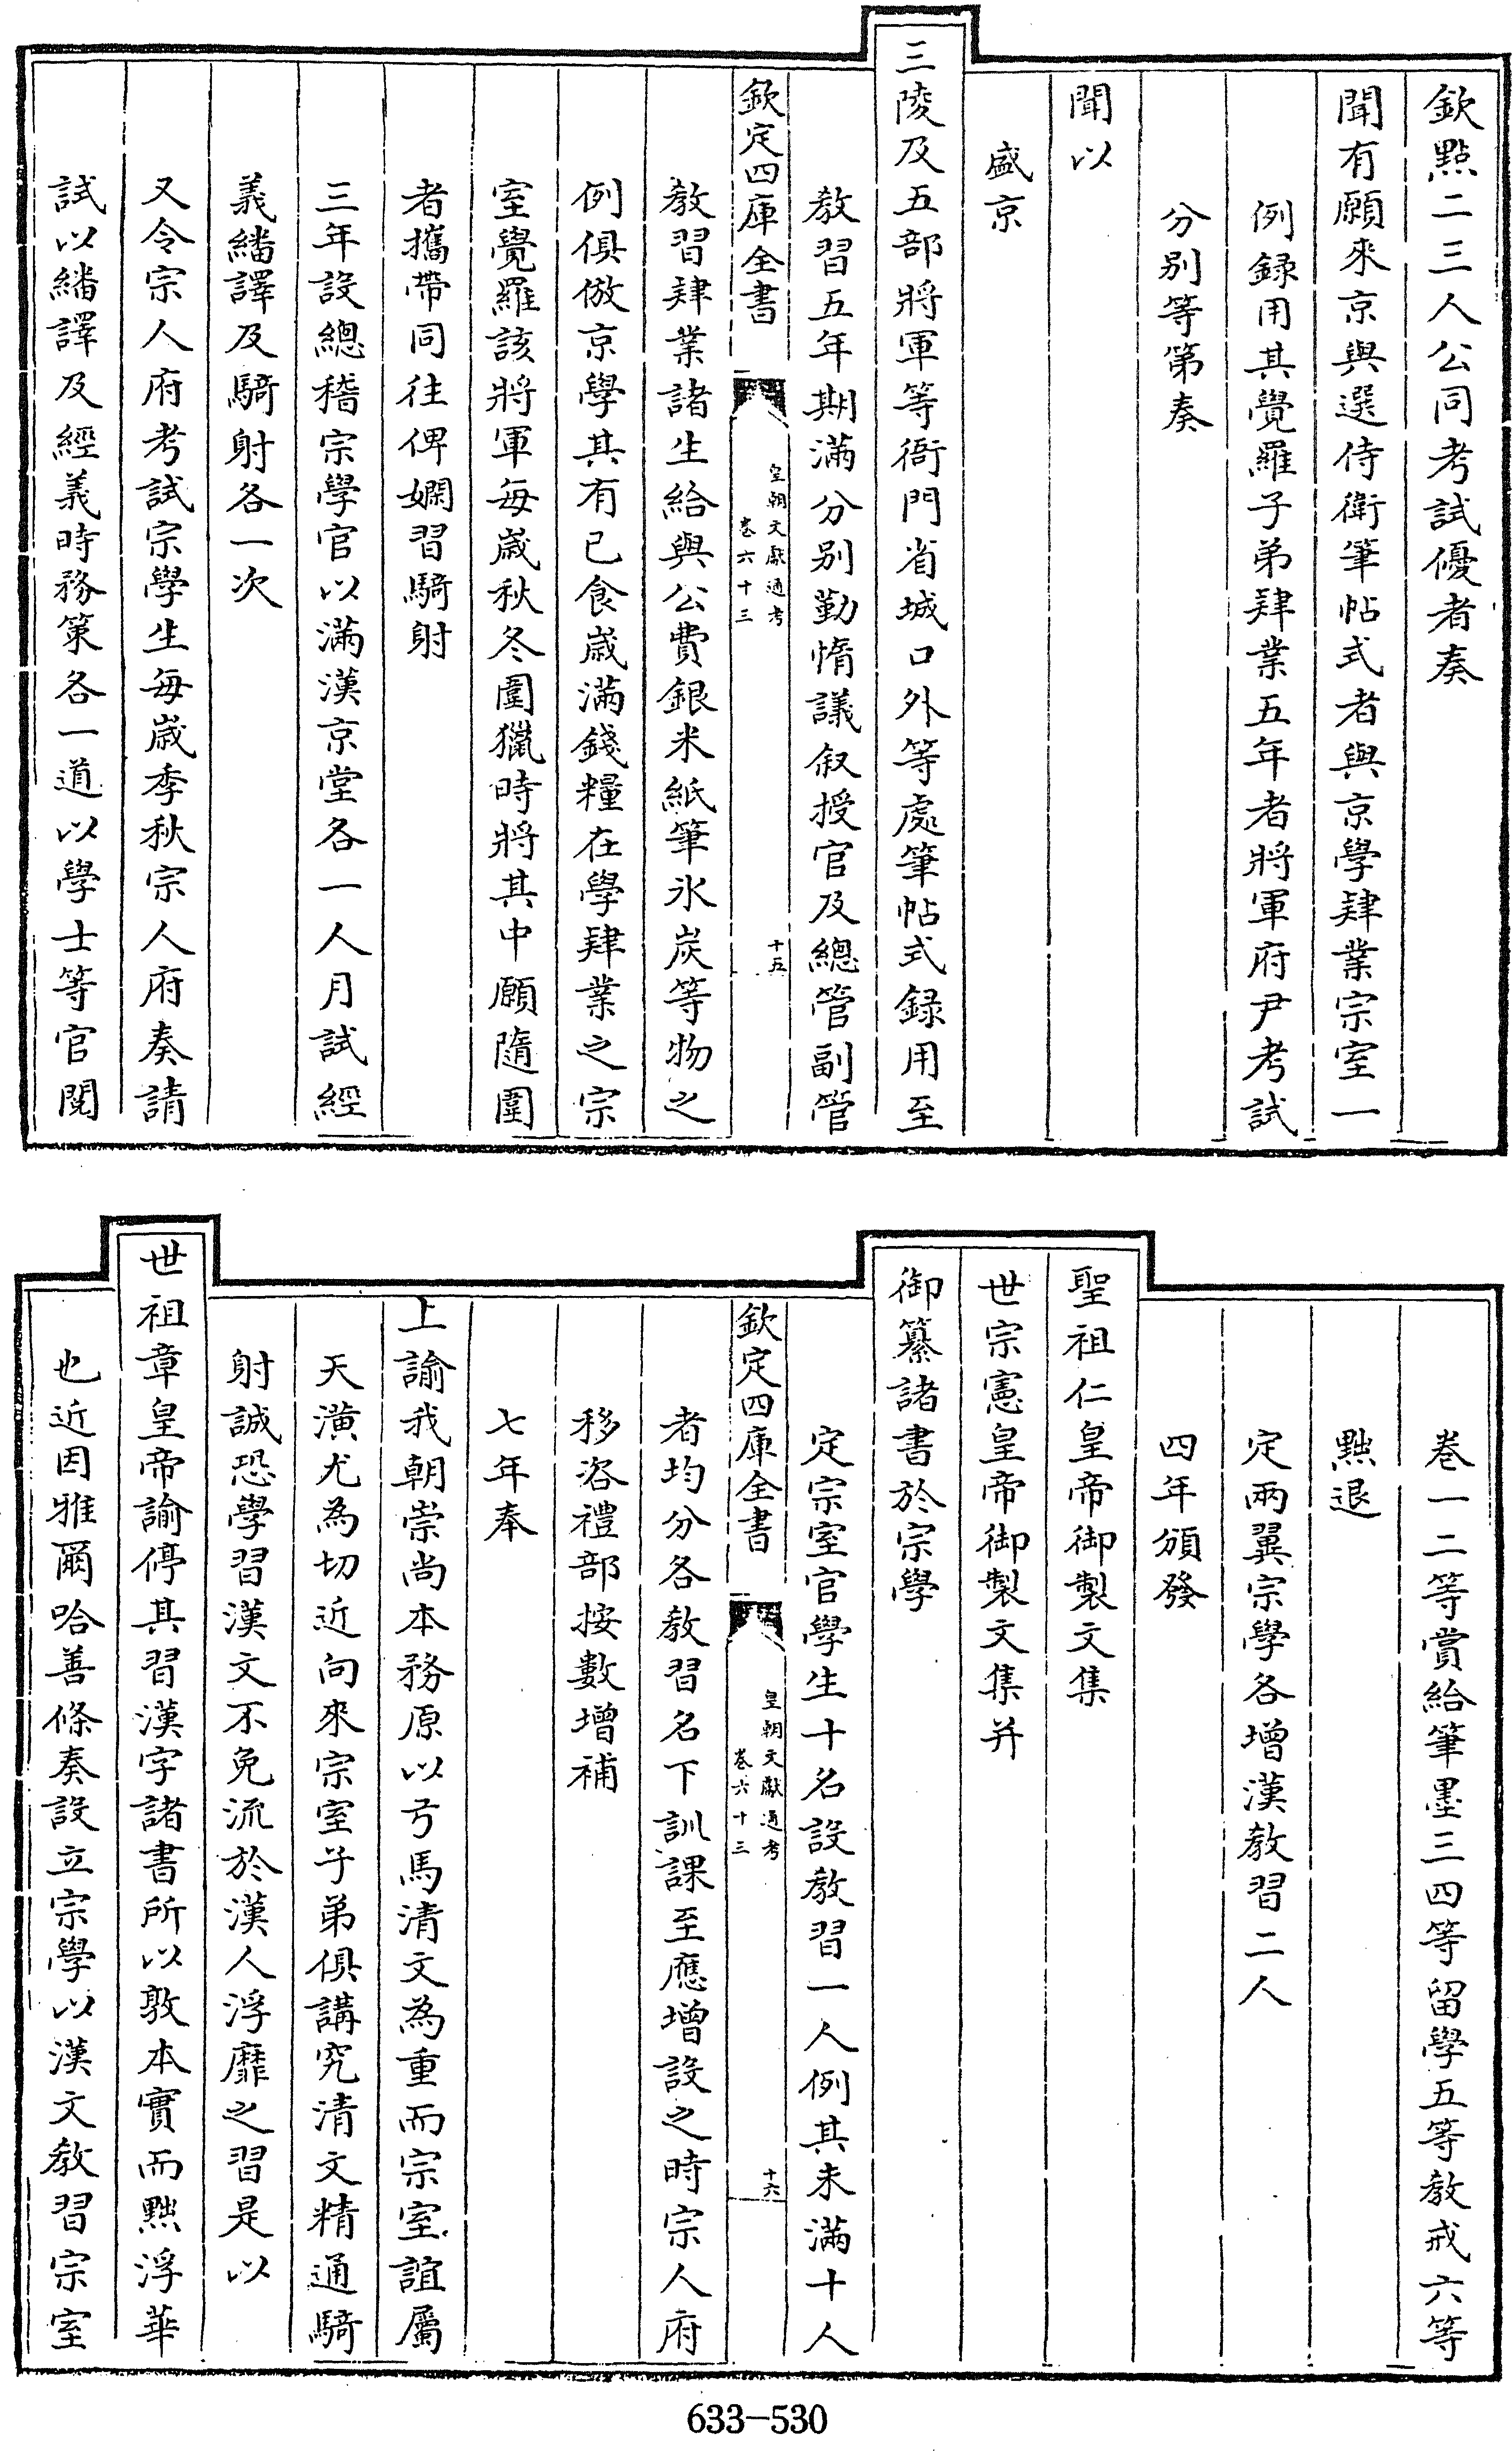 欽點二三人公同考試優者奏
聞有願來京與選侍衛筆帖式者與京學肄業宗室一
例録用其覺羅子弟肄業五年者將軍府尹考試
分别等第奏
聞以
盛京
三陵及五部將軍等衙門省城口外等處筆帖式録用至
教習五年期滿分别勤惰議叙授官及總管副管
欽定四庫全書
皇朝文獻通考
卷六十三
十五
教習肄業諸生給與公費銀米紙筆氷炭等物之
例俱倣京學其有已食歲滿錢糧在學肄業之宗
室覺羅該將軍每歲秋冬圍獵時將其中願隨圍
者攜帶同往俾嫻習騎射
三年設總稽宗學官以滿漢京堂各一人月試經
義繙譯及騎射各一次
又令宗人府考試宗學生每歲季秋宗人府奏請
試以繙譯及經義時務策各一道以學士等官閱
卷一二等賞給筆墨三四等留學五等教戒六等
黜退
定兩翼宗學各增漢教習二人
四年頒發
聖祖仁皇帝御製文集
世宗憲皇帝御製文集并
御纂諸書於宗學
定宗室官學生十名設教習一人例其未滿十人
欽定四庫全書
皇朝文獻通考
卷六十三
十六
者均分各教習名下訓課至應增設之時宗人府
移咨禮部按數增補
七年奉
上諭我朝崇尚本務原以弓馬清文為重而宗室誼屬
天潢尤為切近向來宗室子弟俱講究清文精通騎
射誠恐學習漢文不免流於漢人浮靡之習是以
世祖章皇帝諭停其習漢字諸書所以敦本實而黜浮華
也近因雅爾哈善條奏設立宗學以漢文教習宗室
633-530